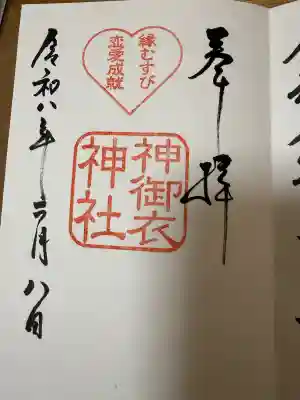 奉拝
縁むすび
恋愛成就
神御衣
神社
令和八年六月八日